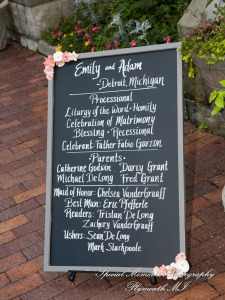 Emily and Adam
~Detroit, Michigan
Processional
Liturgy of the Word · Homily
Celebration of Matrimony
Blessing · Recessional
Celebrant: Father Fabio Garzon
· Parents ·
Catherine Godwin Darcy Grant
Michael De Long Fred Grant
Maid of Honor: Chelsea VanderGraaff
Best Man: Eric Pfefferle
Readers: Tristan De Long
Zachery VanderGraaff
Ushers: Sean De Long
Mark Stachpoole
Special Moments Photography
Plymouth MI